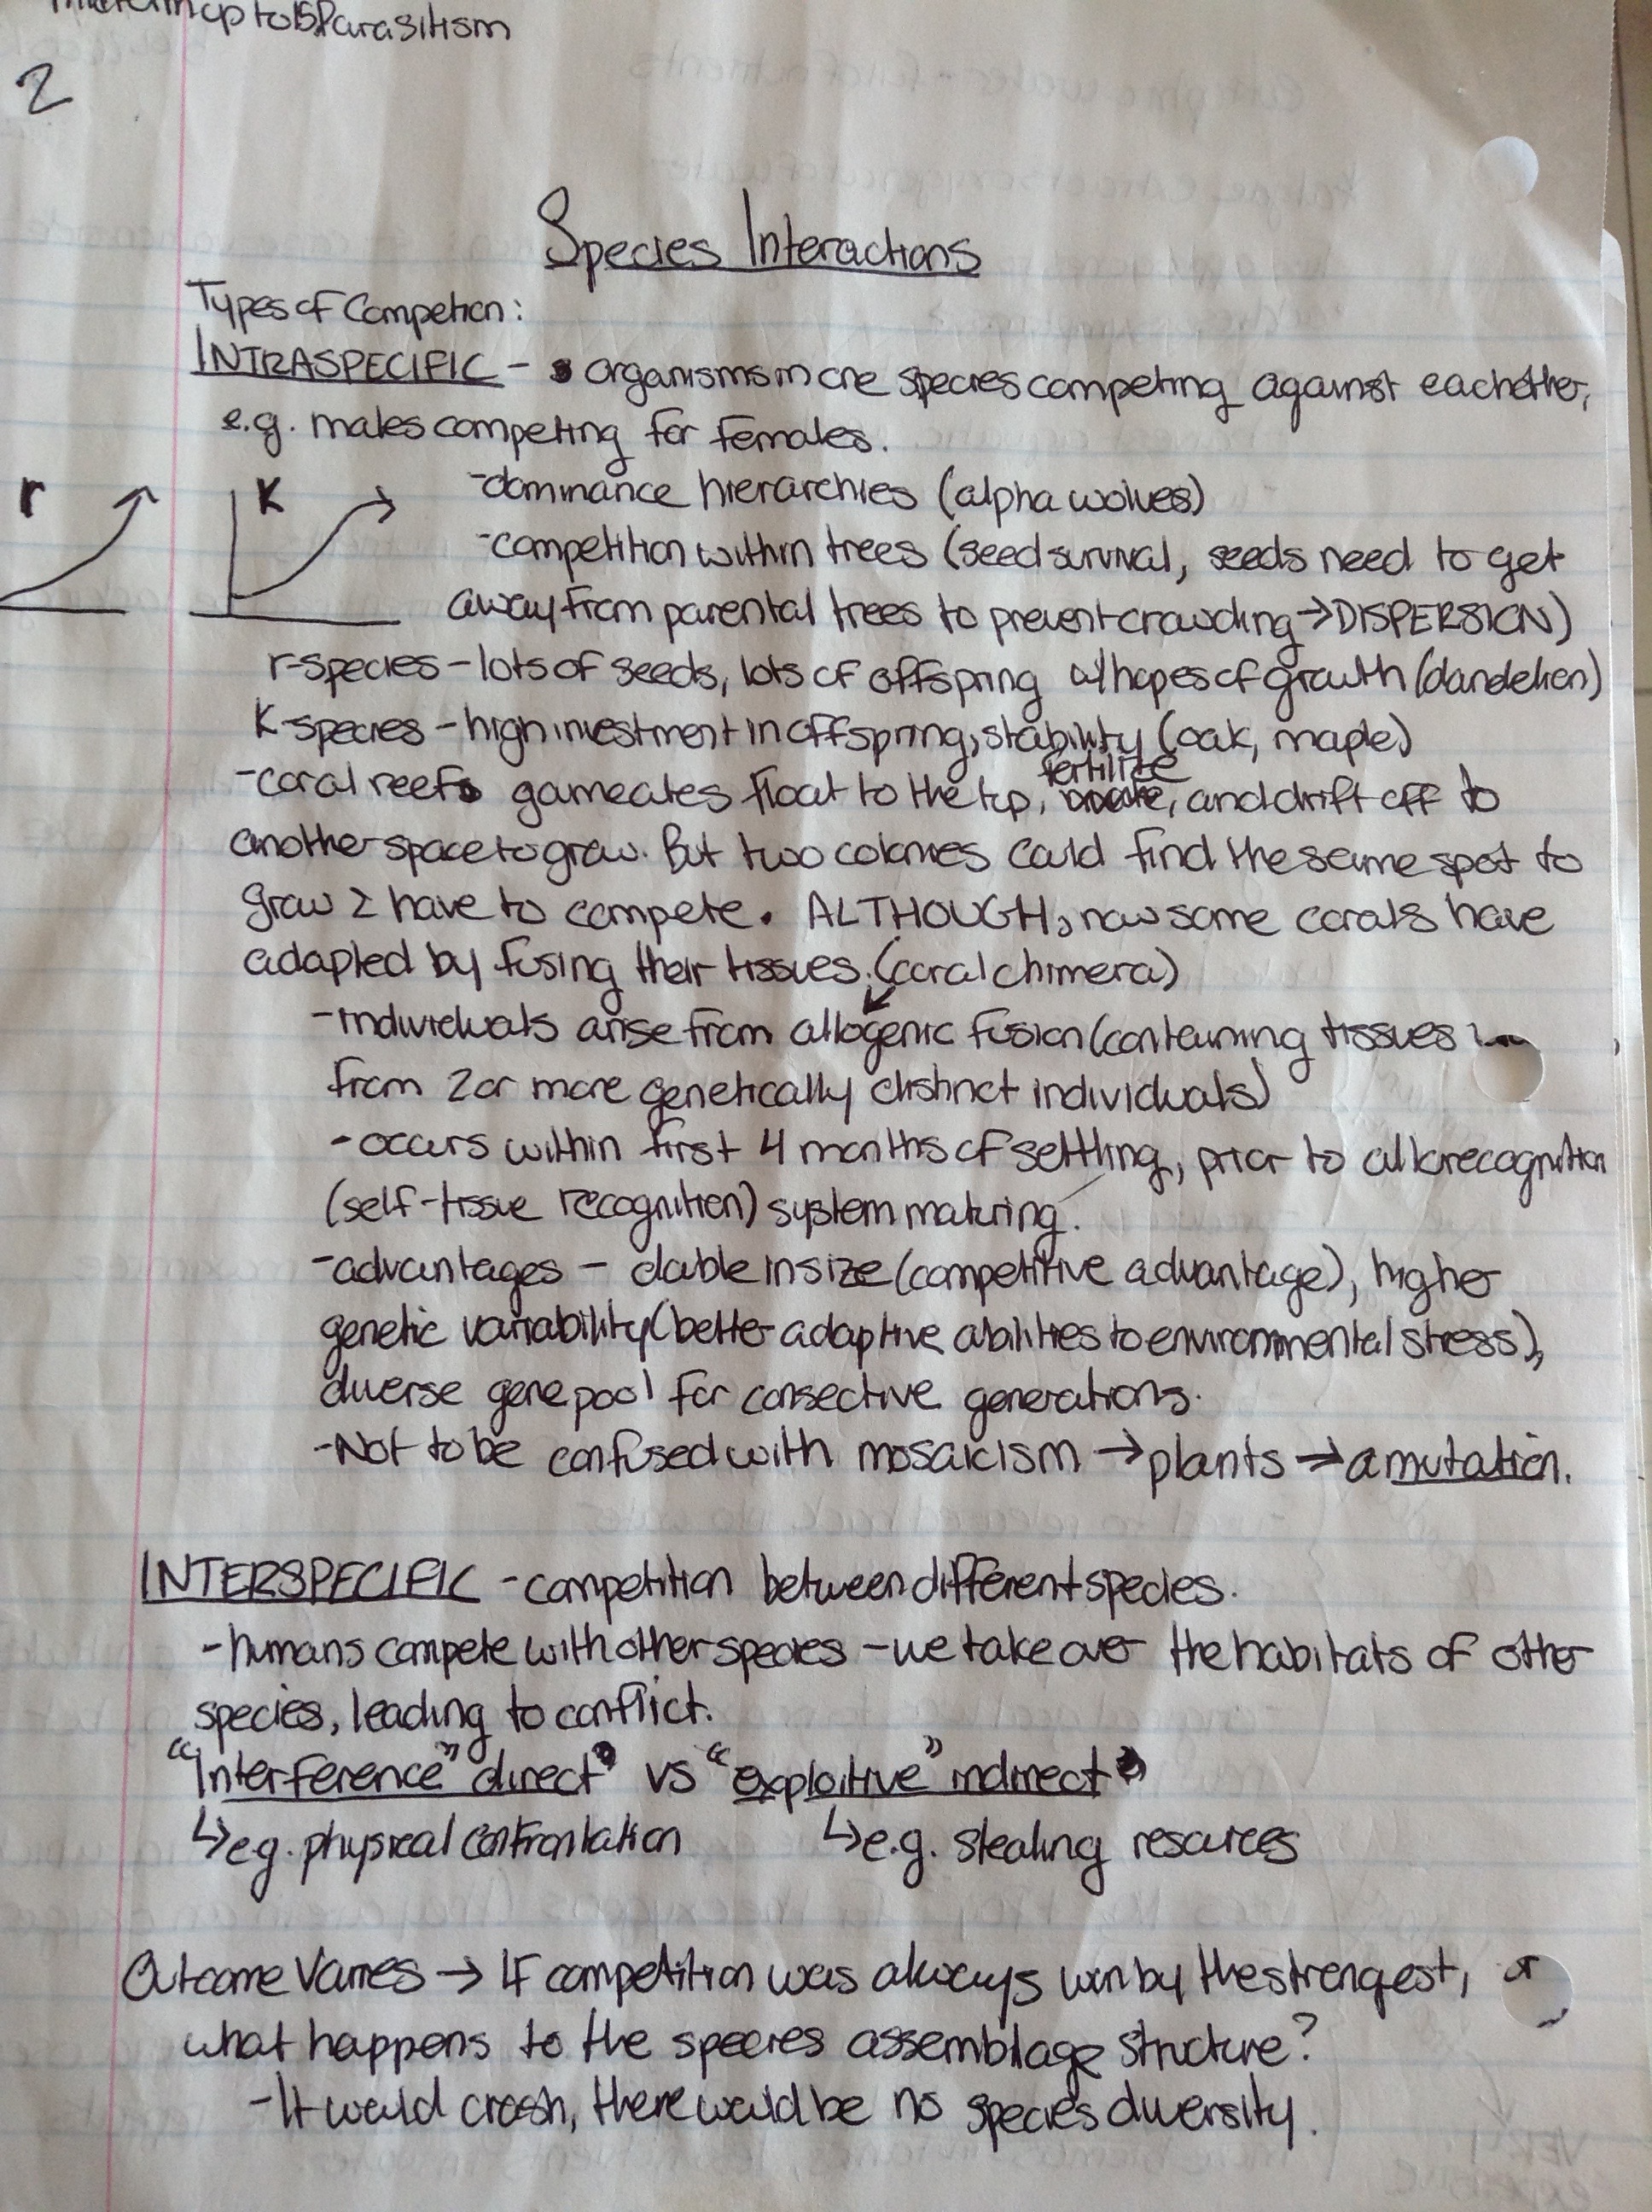 up to 15 Parasitism
2
Species Interactions
Types of Competion:
INTRASPECIFIC - organisms in one species competing against eachother,
e.g. males competing for females.
r K -dominance hierarchies (alpha wolves)
-competition within trees (seed survival, seeds need to get
away from parental trees to prevent crowding → DISPERSION)
r-species - lots of seeds, lots of offspring w/ hopes of growth (dandelion)
K-species - high investment in offspring, stability (oak, maple)
fertilize
-coral reefs gameates float to the top, and drift off to
another space to grow. But two colonies could find the same spot to
grow & have to compete. ALTHOUGH, now some corals have
adapted by fusing their tissues. (coral chimera)
-individuals arise from allogenic fusion (containing tissues
from 2 or more genetically distinct individuals)
-occurs within first 4 months of settling, prior to allorecognition
(self-tissue recognition) system maturing.
-advantages - double in size (competitive advantage), higher
genetic variability (better adaptive abilities to environmental stress),
diverse gene pool for consective generations.
-Not to be confused with mosaicism → plants → a mutation.
INTERSPECIFIC - competition between different species.
-humans compete with other species - we take over the habitats of other
species, leading to conflict.
"Interference" direct vs "exploitive" indirect
↳ e.g. physical confrontation ↳ e.g. stealing resources
Outcome Varies → If competition was always won by the strongest, or
what happens to the species assemblage structure?
-It would crash, there would be no species diversity.